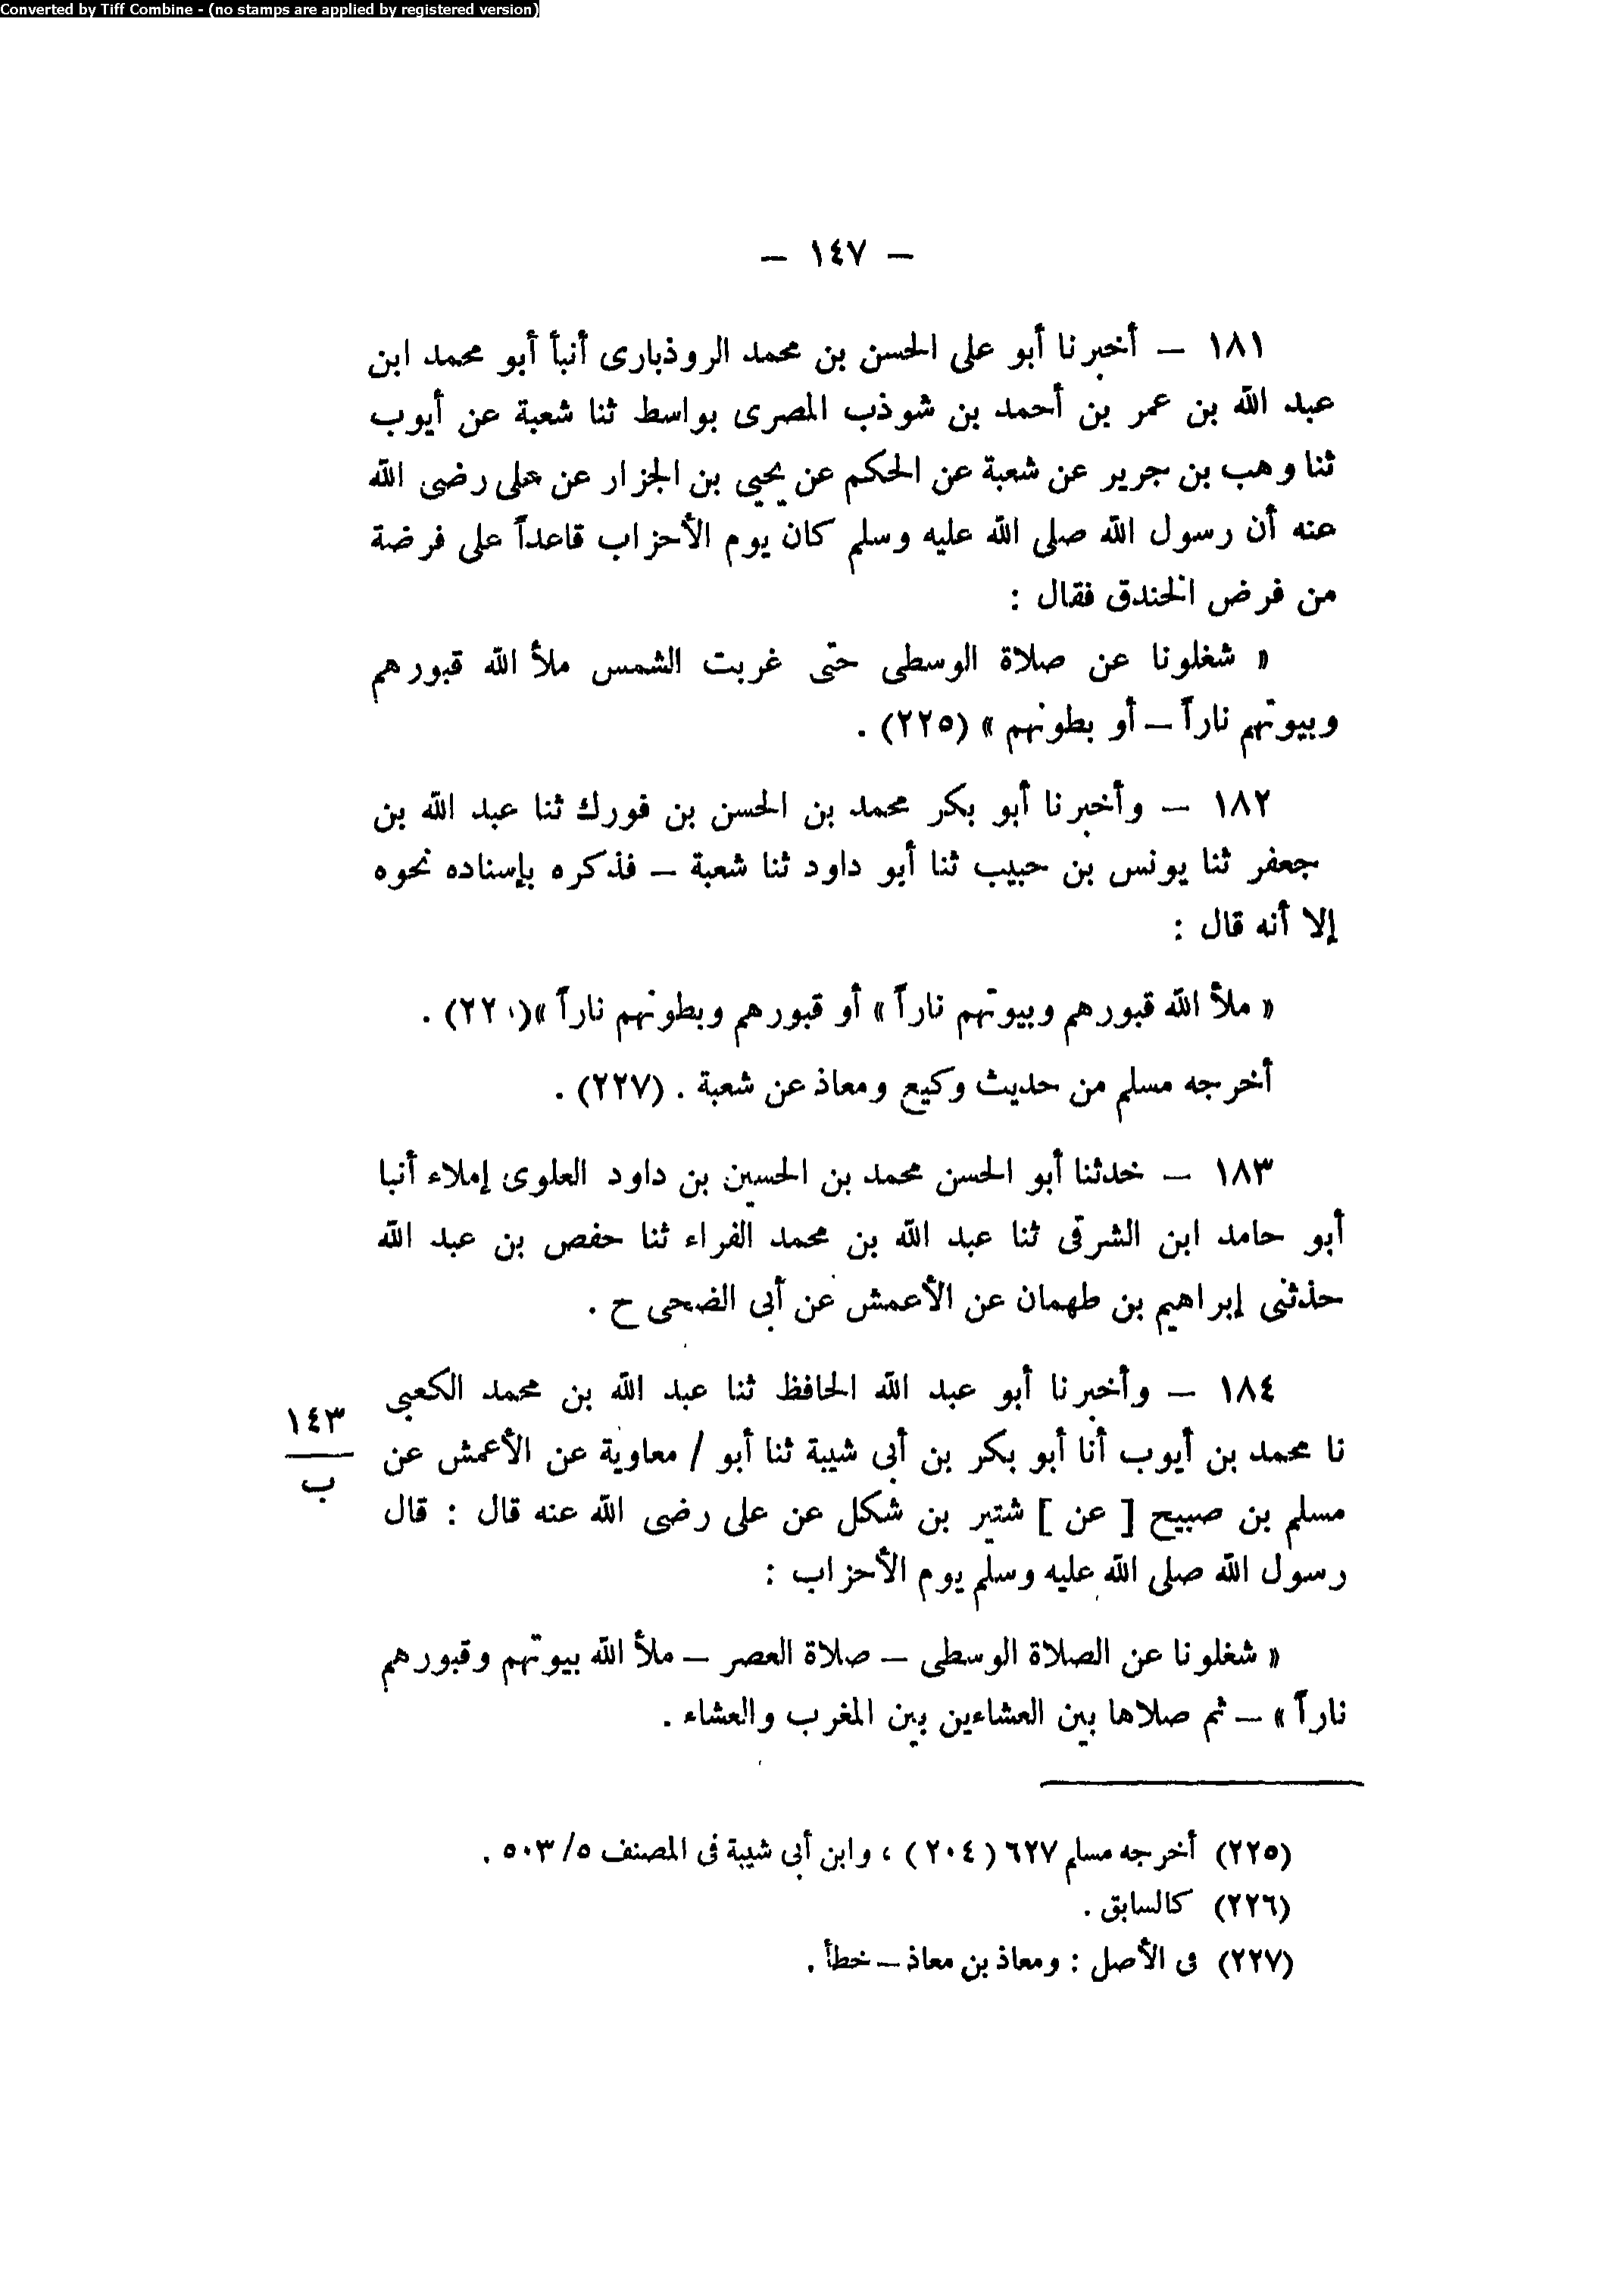 Converted by Tiff Combine - (no stamps are applied by registered version)
– ١٤٧ –
١٨١ – أخبرنا أبو على الحسن بن محمد الروذبارى أنبأ أبو محمد ابن
عبد الله بن عمر بن أحمد بن شوذب المصرى بواسط ثنا شعبة عن أيوب
ثنا وهب بن جرير عن شعبة عن الحكم عن يحيى بن الجزار عن على رضى الله
عنه أن رسول الله صلى الله عليه وسلم كان يوم الأحزاب قاعداً على فرضة
من فرض الخندق فقال :
« شغلونا عن صلاة الوسطى حتى غربت الشمس ملأ الله قبورهم
وبيوتهم ناراً – أو بطونهم » (٢٢٥) .
١٨٢ – وأخبرنا أبو بكر محمد بن الحسن بن فورك ثنا عبد الله بن
جعفر ثنا يونس بن حبيب ثنا أبو داود ثنا شعبة – فذكره بإسناده نحوه
إلا أنه قال :
« ملأ الله قبورهم وبيوتهم ناراً » أو قبورهم وبطونهم ناراً »
أخرجه مسلم من حديث وكيع ومعاذ عن شعبة . (٢٢٧) .
١٨٣ – خدثنا أبو الحسن محمد بن الحسين بن داود العلوى إملاء أنبا
أبو حامد ابن الشرقى ثنا عبد الله بن محمد الفراء ثنا حفص بن عبد الله
حذثنى إبراهيم بن طهمان عن الأعمش عن أبى الضحى ح .
١٨٤ – وأخبرنا أبو عبد الله الحافظ ثنا عبد الله بن محمد الكعبى
نا محمد بن أيوب أنا أبو بكر بن أبى شيبة ثنا أبو / معاوية عن الأعمش عن
١٤٣
ب
مسلم بن صبيح [ عن ] شتير بن شكل عن على رضى الله عنه قال : قال
رسول الله صلى الله عليه وسلم يوم الأحزاب :
« شغلونا عن الصلاة الوسطى – صلاة العصر – ملأ الله بيوتهم وقبورهم
ناراً » – ثم صلاها بين العشاءين بين المغرب والعشاء .
(٢٢٥) أخرجه مسلم ٦٢٧ (٢٠٤) ، وابن أبى شيبة فى المصنف ٥٠٣/٥ .
(٢٢٦) كالسابق .
(٢٢٧) فى الأصل : ومعاذ بن معاذ – خطأ .